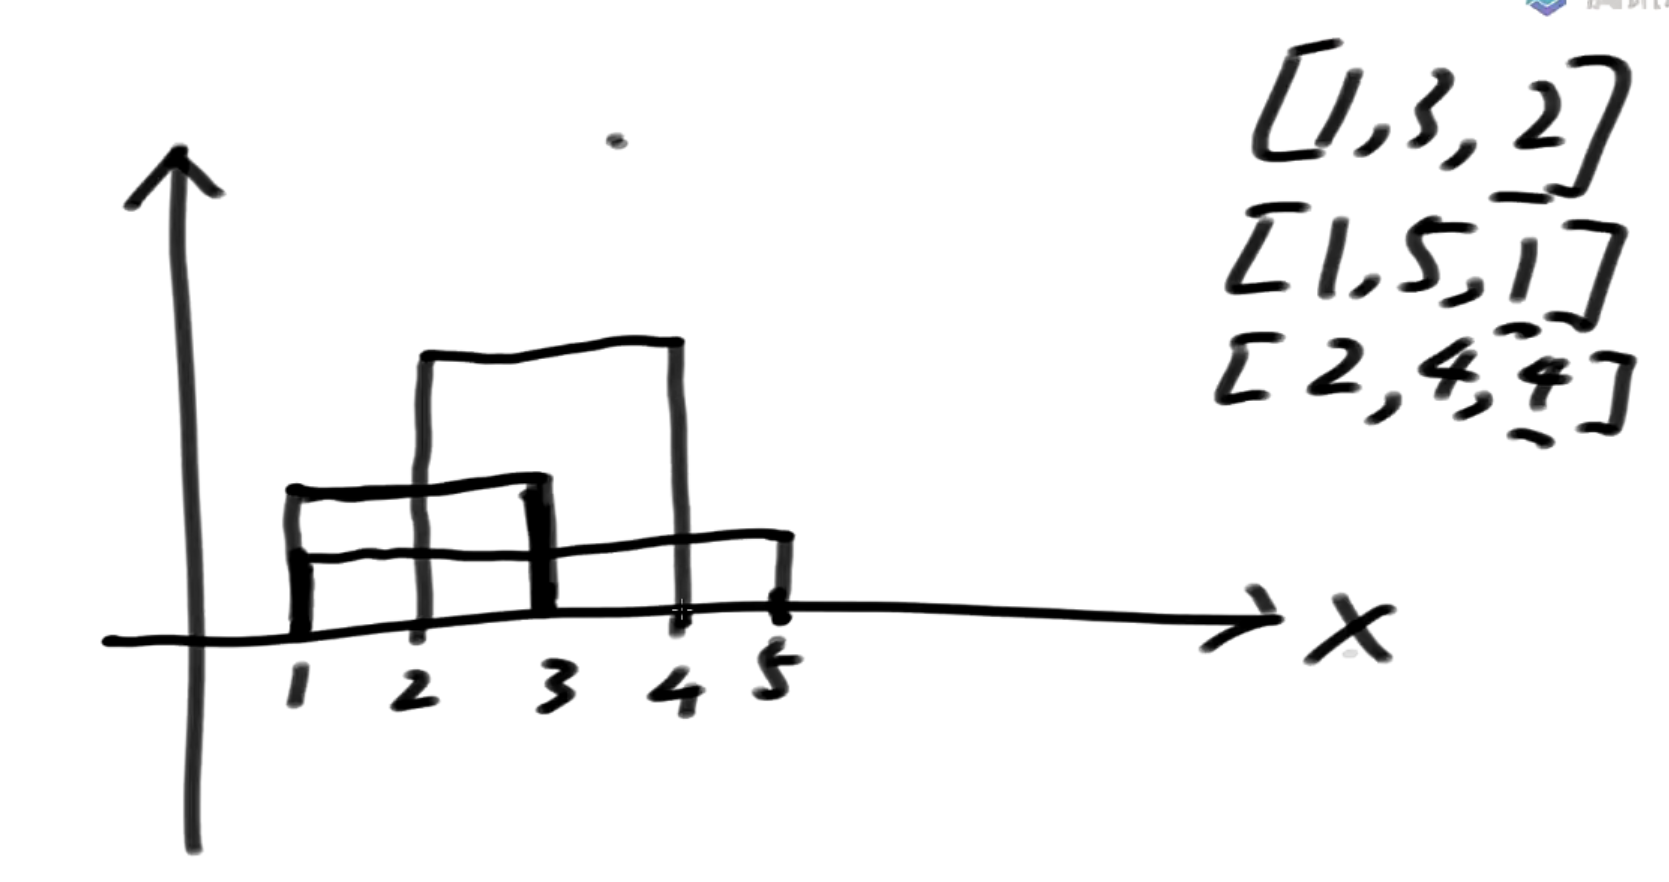 [1,3,2]
[1,5,1]
[2,4,4]
1 2 3 4 5 X